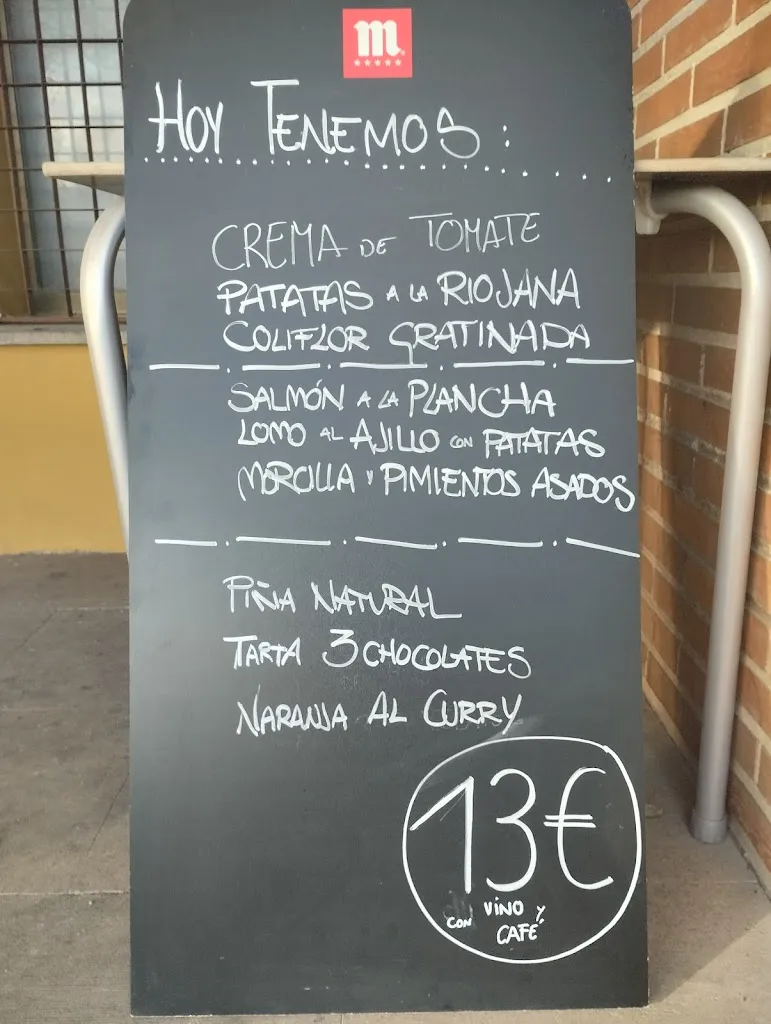 m
HOY TENEMOS:
CREMA DE TOMATE
PATATAS A LA RIOJANA
COLIFLOR GRATINADA
SALMÓN A LA PLANCHA
LOMO AL AJILLO CON PATATAS
MORCILLA Y PIMIENTOS ASADOS
PIÑA NATURAL
TARTA 3 CHOCOLATES
NARANJA AL CURRY
13€
CON VINO Y
CAFÉ